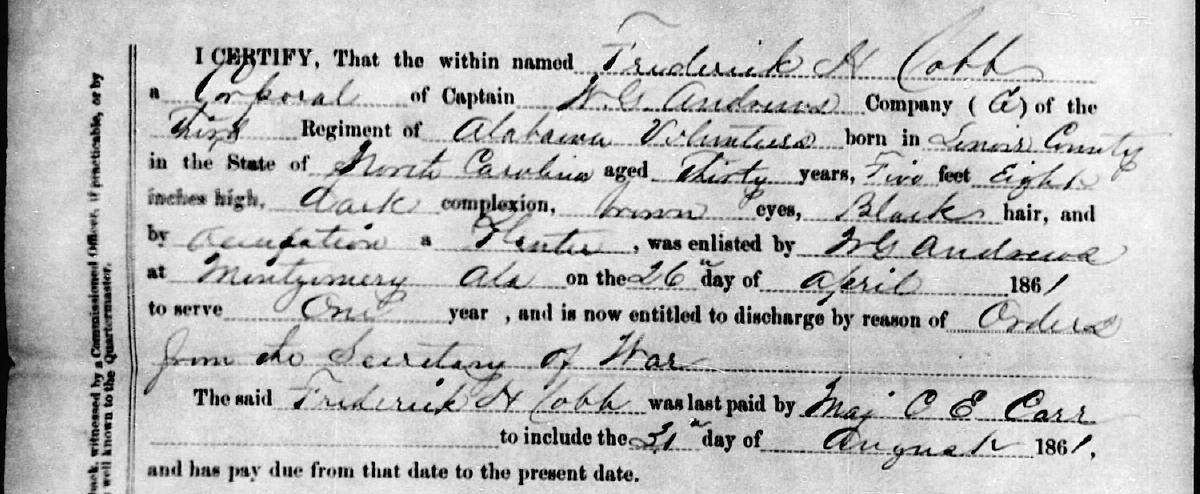 I CERTIFY, That the within named Frederick H Cobb
a Corporal of Captain W. G. Andrews Company ( G ) of the
Third Regiment of Alabama Volunteers born in Lenoir County
in the State of North Carolina aged Thirty years, Five feet Eight
inches high, dark complexion, brown eyes, Black hair, and
by occupation a Planter, was enlisted by W G Andrews
at Montgomery Ala on the 26th day of April 1861
to serve One year , and is now entitled to discharge by reason of Orders
from the Secretary of War
The said Frederick H Cobb was last paid by Maj C E Carr
to include the 31st day of August 1861,
and has pay due from that date to the present date.
back, witnessed by a Commissioned Officer, if practicable, or by
well known to the Quartermaster.